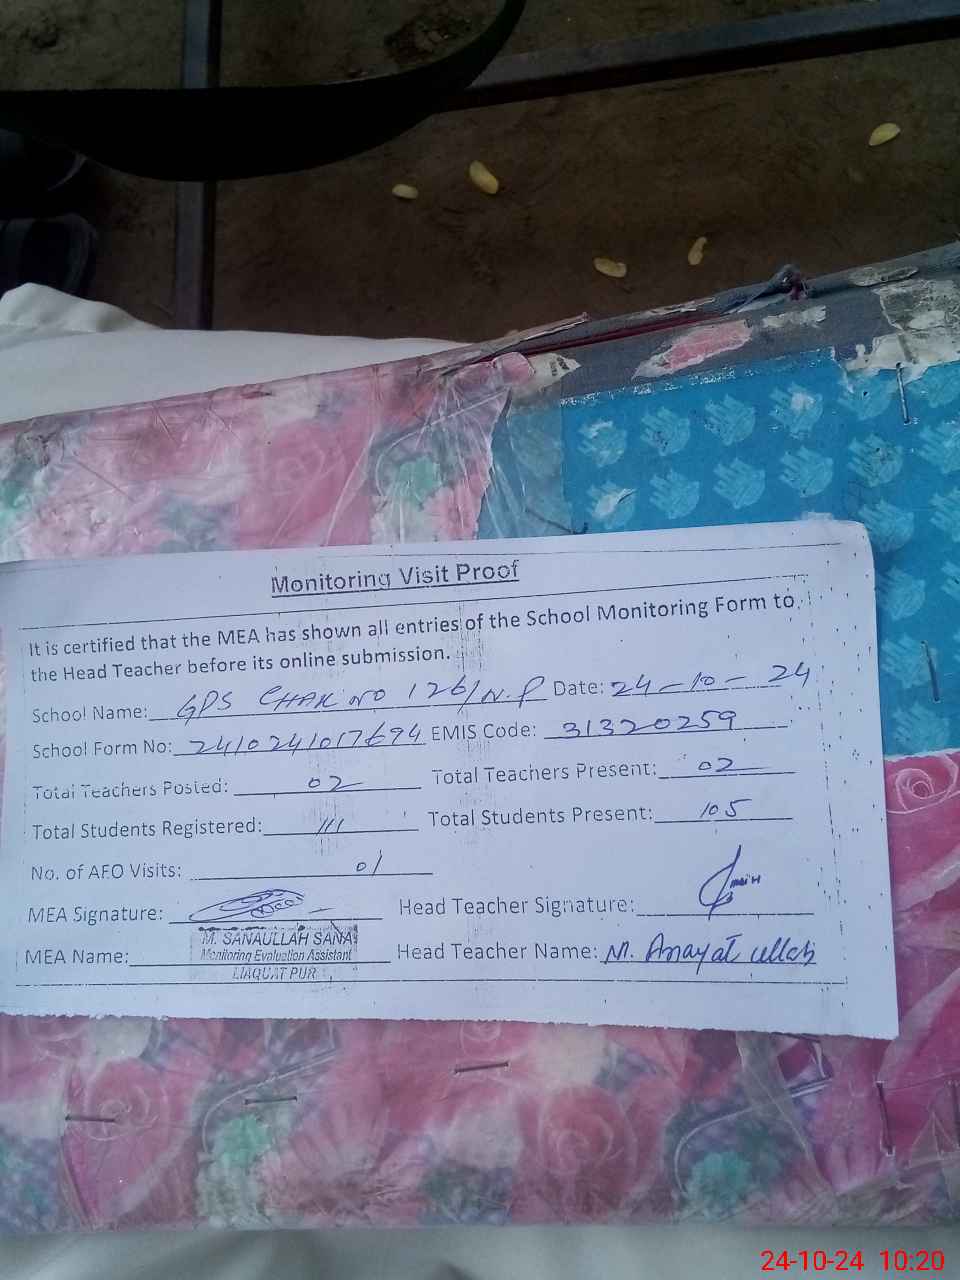 Monitoring Visit Proof
It is certified that the MEA has shown all entries of the School Monitoring Form to
the Head Teacher before its online submission.
School Name: GPS CHAK NO 126/N.P Date: 24-10-24
School Form No: 2410241017694 EMIS Code: 31320259
Total Teachers Posted: 02 Total Teachers Present: 02
Total Students Registered: 111 Total Students Present: 105
No. of AEO Visits: 01
MEA Signature: Head Teacher Signature:
MEA Name: M. SANAULLAH SANA Head Teacher Name: M. Anayat ullah
Monitoring Evaluation Assistant
LIAQUAT PUR
24-10-24 10:20